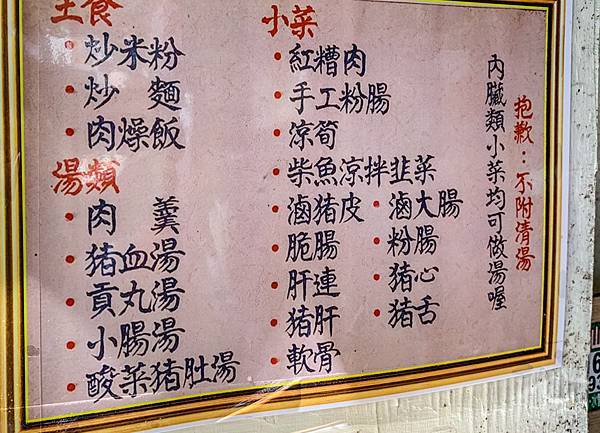 主食
炒米粉
炒 麵
肉燥飯
湯類
肉 羹
豬血湯
貢丸湯
小腸湯
酸菜豬肚湯
小菜
紅糟肉
手工粉腸
涼筍
柴魚涼拌韭菜
滷豬皮・滷大腸
脆腸・粉腸
肝連・豬心
豬肝・豬舌
軟骨
內臟類小菜均可做湯喔
抱歉：不附清湯